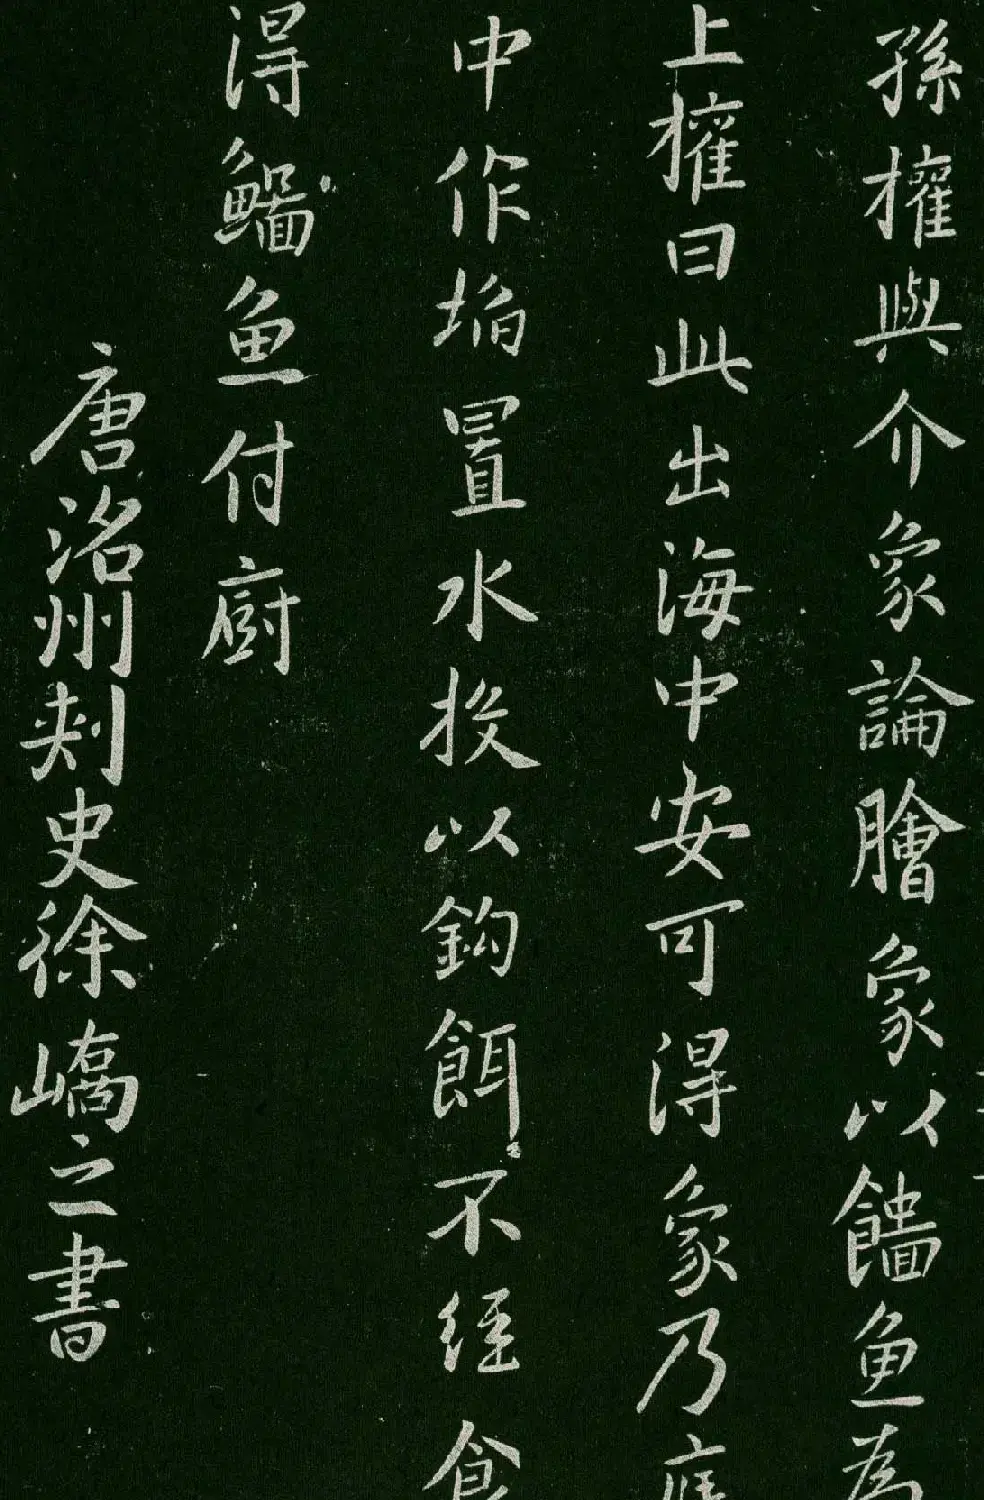 孫權與介象論膾象以魚為
上權曰此出海中安可得象乃庭
中作埳置水投以鈎餌不經食
得魚付廚
唐洺州刾史徐嶠之書